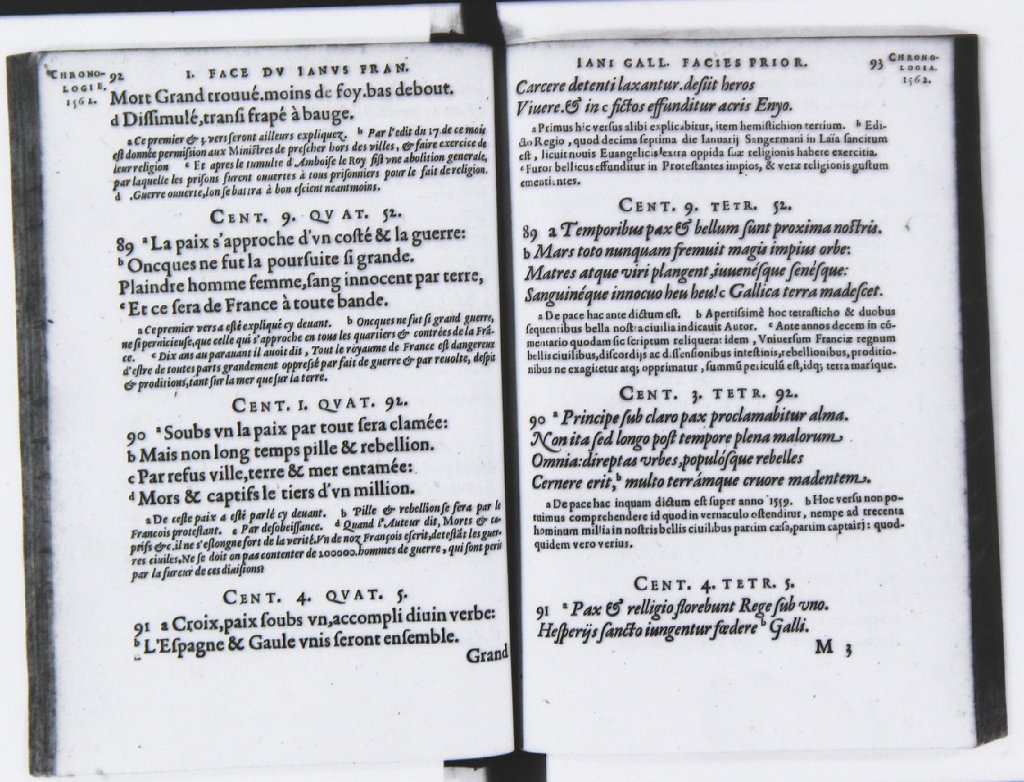 CHRONO-
LOGIE.
1562.
92
I. FACE DV IANVS FRAN.
Mort Grand trouué.moins de foy.bas debout.
d Dissimulé,transi frapé à bauge.
a Ce premier & 3 vers seront ailleurs expliquez. b Par l'edit du 17 de ce mois
est donnée permission aux Ministres de prescher hors des villes, & faire exercise de
leur religion c Et apres le tumulte d'Amboise le Roy fist vne abolition generale,
par laquelle les prisons furent ouuertes à tous prisonniers pour le fait de religion.
d .Guerre ouuerte,lon se battra à bon escient neantmoins.
CENT. 9. QVAT. 52.
89 a La paix s'approche d'vn costé & la guerre:
b Oncques ne fut la poursuite si grande.
Plaindre homme femme,sang innocent par terre,
c Et ce sera de France à toute bande.
a Ce premier vers a esté expliqué cy deuant. b Oncques ne fut si grand guerre,
ne si pernicieuse,que celle qui s'approche en tous les quartiers & contrées de la Frã-
ce. c Dix ans au parauant il auoit dit , Tout le royaume de France est dangereux
d'estre de toutes parts grandement oppressé par fait de guerre & par reuolte, despit
& proditions,tant sur la mer que sur la terre.
CENT. I. QVAT. 92.
90 a Soubs vn la paix par tout sera clamée:
b Mais non long temps pille & rebellion.
c Par refus ville,terre & mer entamée:
d Mors & captifs le tiers d'vn million.
a De ceste paix a esté parlé cy deuant. b Pille & rebellion se fera par le
François protestant. c Par desobeissance. d Quand l'Auteur dit, Morts & ca-
ptifs &c,il ne s'eslongne fort de la verité.Vn de noz François escrit,detestãt les guer-
res ciuiles,Ne se doit on pas contenter de 200000.hommes de guerre , qui sont peris
par la fureur de ces diuisions?
CENT. 4. QVAT. 5.
91 a Croix,paix soubs vn,accompli diuin verbe:
b L'Espagne & Gaule vnis seront ensemble.
Grand
IANI GALL. FACIES PRIOR.
93
CHRONO-
LOGIA.
1562.
Carcere detenti laxantur.desiit heros
Viuere.& in c fictos effunditur acris Enyo.
a Primus hic versus alibi explicabitur, item hemistichion tertium. b Edi-
cto Regio , quod decima septima die Ianuarij Sangermani in Laïa sancitum
est , licuit nouis Euangelicis extra oppida suæ religionis habere exercitia.
c Furor bellicus effunditur in Protestantes impios, & veræ religionis gustum
ementientes.
CENT. 9. TETR. 52.
89 a Temporibus pax & bellum sunt proxima nostris.
b Mars toto nunquam fremuit magis impius orbe:
Matres atque viri plangent,iuuenésque senésque:
Sanguinéque innocuo heu heu! c Gallica terra madescet.
a De pace hac ante dictum est. b Apertissimè hoc tetrasticho & duobus
sequentibus bella nostra ciuilia indicauit Autor. c Ante annos decem in cõ-
mentario quodam sic scriptum reliquerat idem , Vniuersum Franciæ regnum
bellis ciuilibus,discordijs ac dissensionibus intestinis,rebellionibus, proditio-
nibus ne exagitetur atq; opprimatur , summũ periculũ est,idq; terra marique.
CENT. 3. TETR. 92.
90 a Principe sub claro pax proclamabitur alma.
Non ita sed longo post tempore plena malorum
Omnia:direptas vrbes,populósque rebelles
Cernere erit, b multo terrámque cruore madentem.
a De pace hac inquam dictum est super anno 1559. b Hoc versu non po-
tuimus comprehendere id quod in vernaculo ostenditur , nempe ad trecenta
hominum millia in nostris bellis ciuilibus partim cæsa,partim capta iri: quod-
quidem vero verius.
CENT. 4. TETR. 5.
91 a Pax & relligio florebunt Rege sub vno.
Hesperijs sancto iungentur fœdere b Galli.
M 3